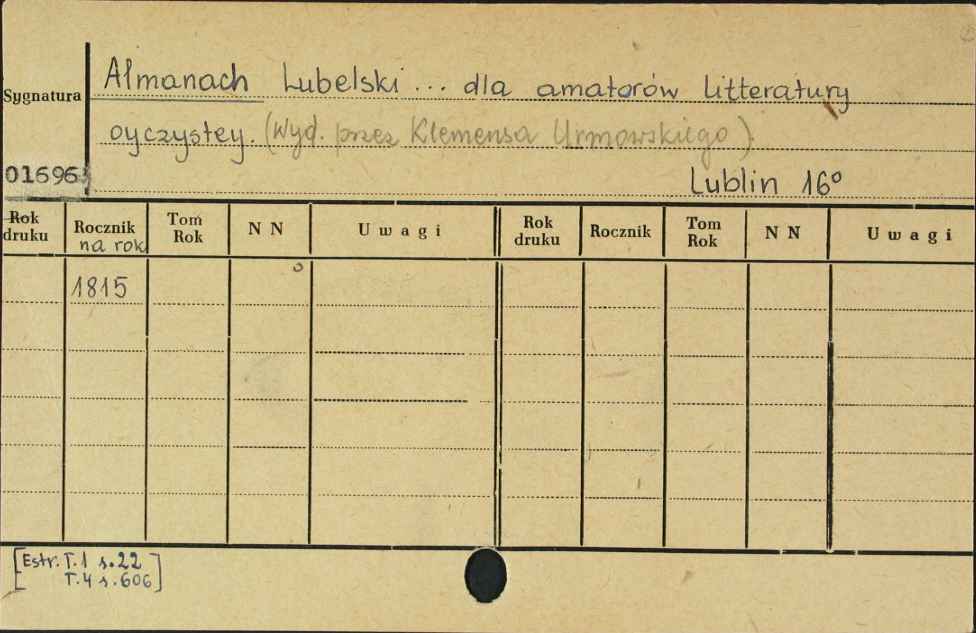 Almanach Lubelski ... dla amatorów litteratury
Sygnatura
oyczystey. (Wyd. przez Klemensa Urmowskiego)
01696
Lublin 16º
Rok druku Rocznik na rok Tom Rok N N Uwagi Rok druku Rocznik Tom Rok N N Uwagi
1815
[Estr. T.1 s.22
T.4 s.606]